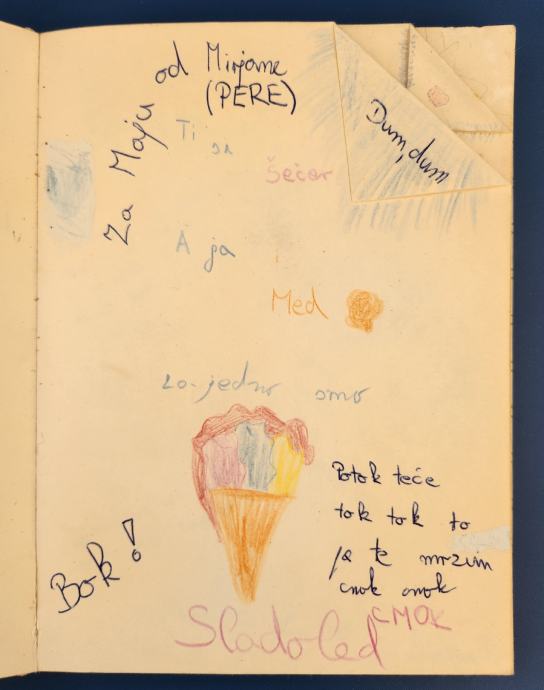 Za Maju od Mirjane
(PERE)
Dum, dum
Ti si
šećer
A ja
Med
za-jedno smo
Potok teče
tok tok to
ja te mrzim
cmok cmok
CMOK
Bok!
Sladoled